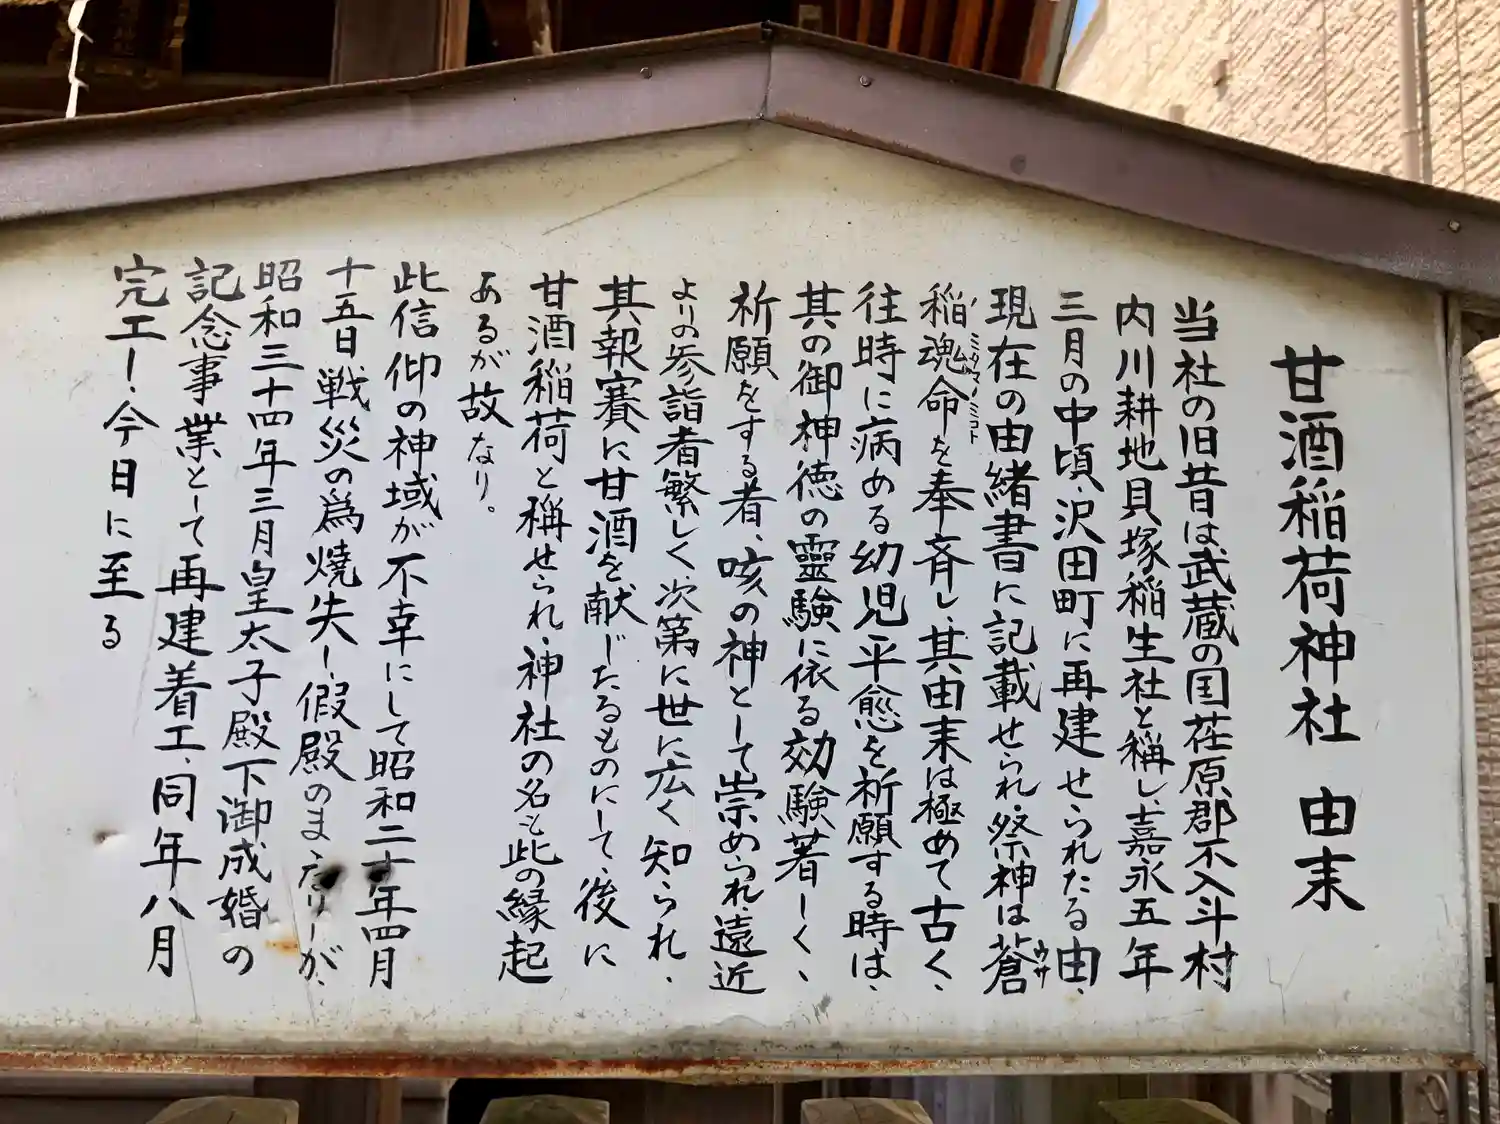 甘酒稲荷神社 由来
当社の旧昔は武蔵の国荏原郡不入斗村
内川耕地貝塚稲生社と稱し、嘉永五年
三月の中頃、沢田町に再建せられたる由、
現在の由緒書に記載せられ、祭神は蒼
稲魂命を奉斉し、其由来は極めて古く、
往時に病める幼児平愈を祈願する時は、
其の御神徳の靈験に依る効験著しく、
祈願をする者、咳の神として崇められ、遠近
よりの参詣者繁しく、次第に世に広く知られ、
其報賽に甘酒を献じたるものにて、後に
甘酒稲荷と稱せられ、神社の名も此の縁起
あるが故なり。
此信仰の神域が不幸にして昭和二十年四月
十五日戦災の為焼失し、假殿のまゝなりしが、
昭和三十四年三月皇太子殿下御成婚の
記念事業として再建着工、同年八月
完工し、今日に至る